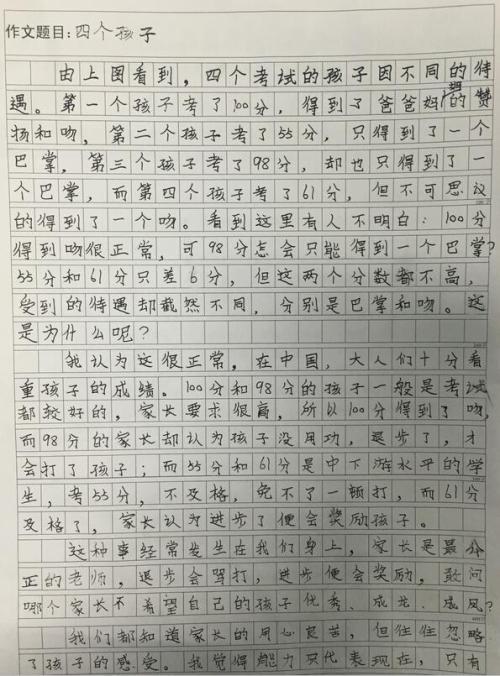 作文题目:四个孩子
由上图看到，四个考试的孩子因不同的待
遇。第一个孩子考了100分，得到了爸爸妈妈的赞
扬和吻，第二个孩子考了55分，只得到了一个
巴掌，第三个孩子考了98分，却也只得到了一
个巴掌，而第四个孩子考了61分，但不可思议
的得到了一个吻。看到这里有人不明白：100分
得到吻很正常，可98分怎会只能得到一个巴掌？
55分和61分只差6分，但这两个分数都不高，
受到的待遇却截然不同，分别是巴掌和吻。这
是为什么呢？
我认为这很正常，在中国，大人们十分看
重孩子的成绩。100分和98分的孩子一般是考试
都较好的，家长要求很高，所以100分得到了吻，
而98分的家长却认为孩子没用功，退步了，才
会打了孩子；而55分和61分是中下游水平的学
生，考55分，不及格，免不了一顿打，而61分
及格了，家长认为进步了便会奖励孩子。
这种事经常发生在我们身上，家长是最公
正的老师，退步会骂打，进步便会奖励，敢问
哪个家长不希望自己的孩子优秀、成龙、成凤？
我们都知道家长的用心良苦，但往往忽略
了孩子的感受。我觉得能力只代表现在，只有